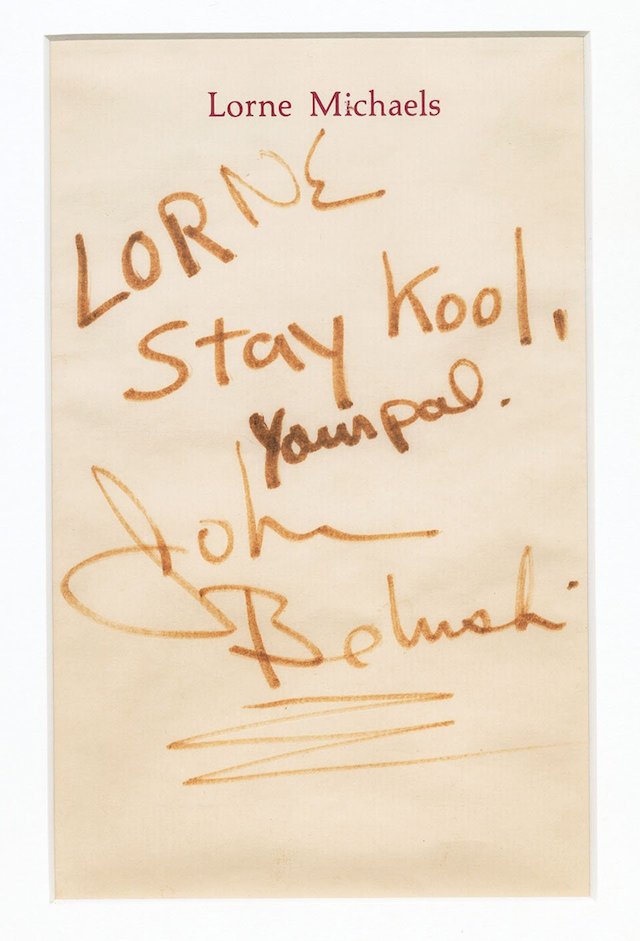 Lorne Michaels
LORNE
Stay Kool,
Your pal.
John
Belushi